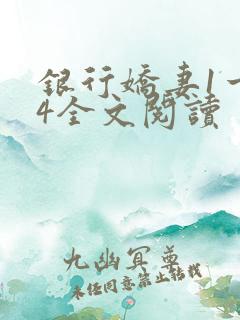 銀行嬌妻1一
4全文閱讀
九幽冥尊
未經同意禁止轉載